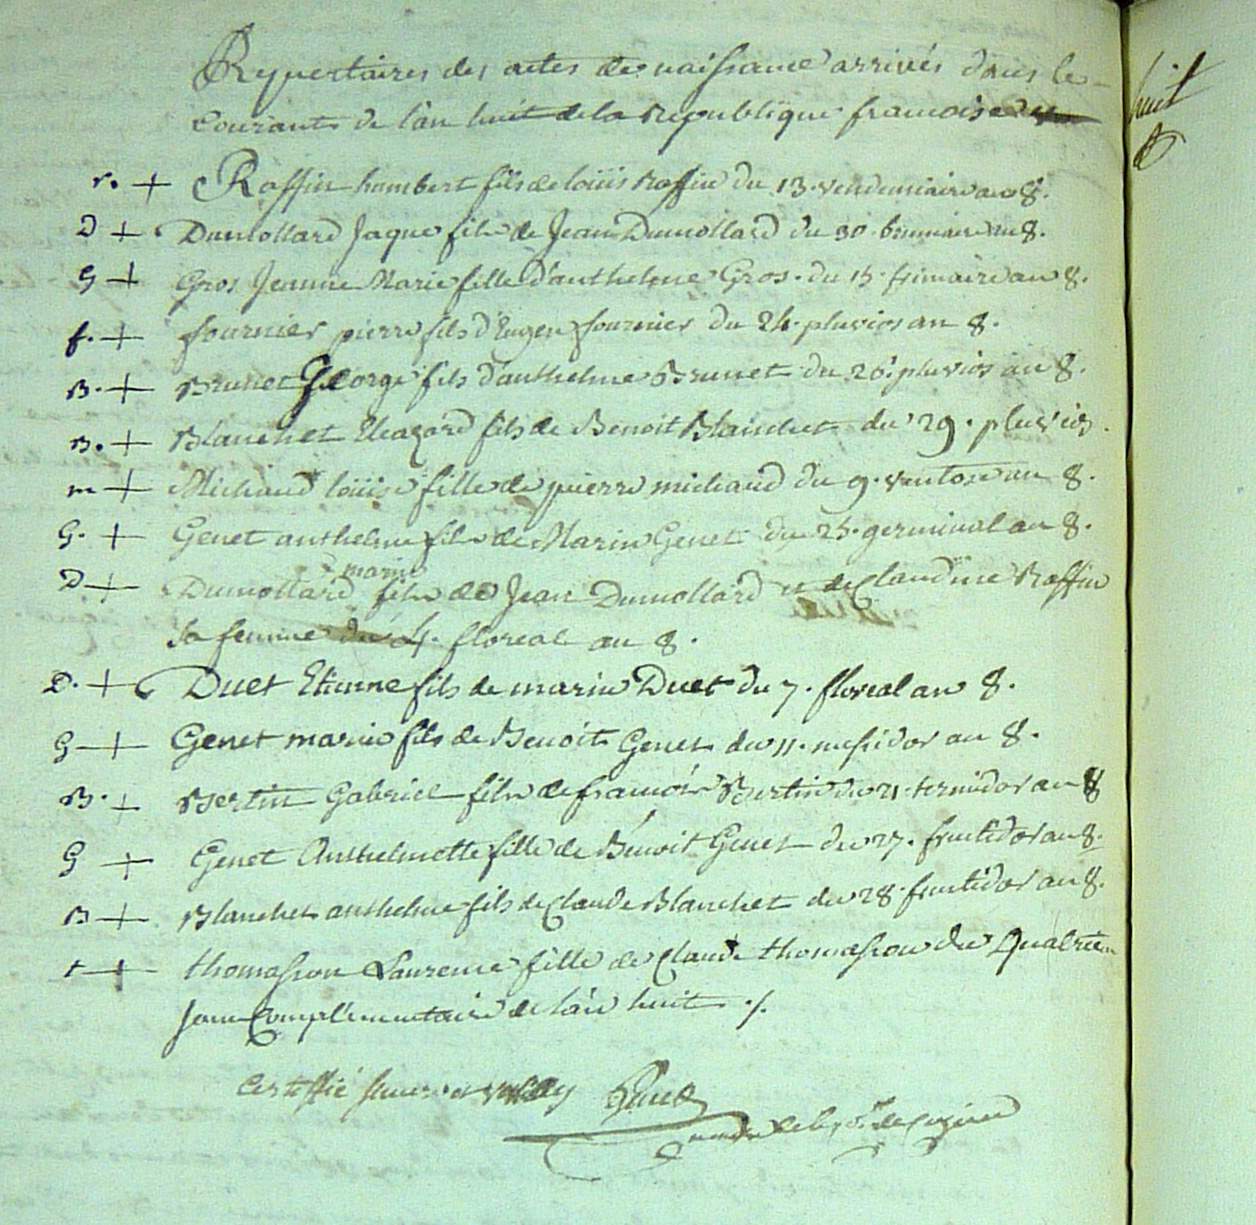 Repertoires des actes de naissance arrivés dans le
Courants de l'an huit de la Republique francoise
huit
r. + Raffin humbert fils de loüis Raffin du 13. vendemiaire an 8.
D + Dumollard Jaque fils de Jean Dumollard du 30. brumaire an 8.
G + Gros Jeanne Marie fille d'anthelme Gros. du 15. frimaire an 8.
f. + fournier pierre fils d'Eugen fournier du 24. pluvios an 8.
B. + Brunet George fils d'anthelme Brunet du 26. pluvios an 8.
B. + Blanchet Eleazard fils de Benoit Blanchet du 29. pluvios.
m + Michaud loüise fille de pierre michaud du 9. ventose an 8.
G. + Genet anthelme fils de Marin Genet du 25. germinal an 8.
marin
D + Dumollard fils de Jean Dumollard et de Claudine Raffin
Sa femme du 4. floreal an 8.
D. + Duet Etienne fils de marin Duet du 7. floreal an 8.
G + Genet marin fils de Benoit Genet du 11. mesidor an 8.
B. + Bertin Gabriel fils de francois Bertin du 21. termidor an 8
G + Genet Anthelmette fille de Benoit Genet du 27. fructidor an 8.
B + Blanchet anthelme fils de Claude Blanchet du 28. fructidor an 8.
t + thomasson Laurence fille de Claude thomasson du Quatriem
Jour Complementaire de l'an huit ./.
Certiffié sincere et